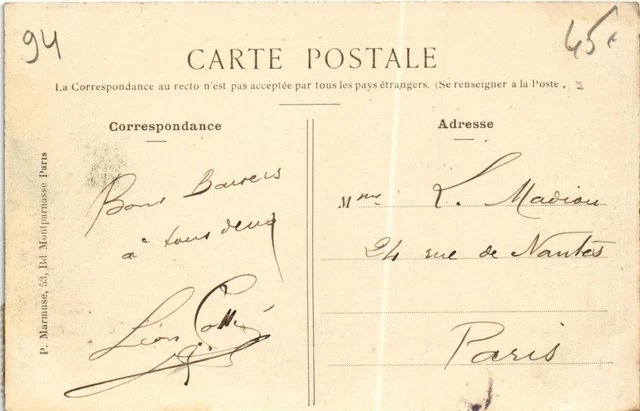 94
45€
CARTE POSTALE
La Correspondance au recto n'est pas acceptée par tous les pays étrangers. (Se renseigner à la Poste,
Correspondance
Adresse
Bons Baisers
à tous deux
Léon
Mme L. Madiou
24 rue de Nantes
Paris
P. Marmuse, 53, Bd Montparnasse Paris